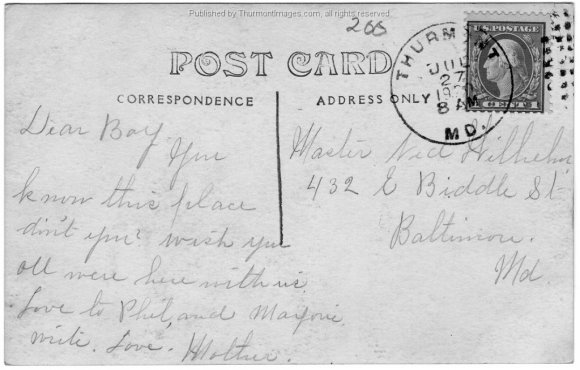 Published by ThurmontImages.com, all rights reserved
266
POST CARD
CORRESPONDENCE
ADDRESS ONLY
THURMONT
JUL
27
8 AM
MD.
U.S. POSTAGE
CENT 1
Dear Boy
You
know this place
don't you? wish you
all were here with us
Love to Phil, and Marjorie
write. Love. Mother.
Master Ned Wilhelm
432 E Biddle St
Baltimore.
Md.